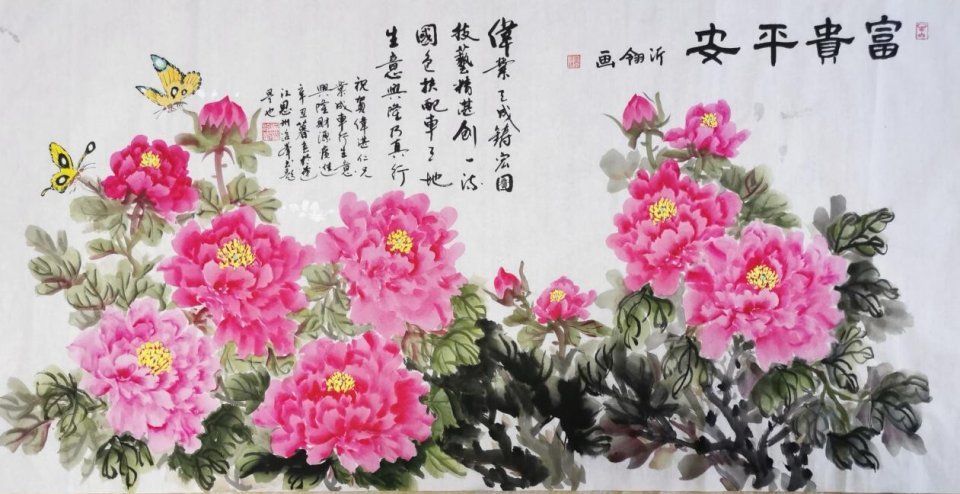 富貴平安
沂翎画
偉業已成鑄宏圖
技藝精湛創一流
國色扶配車之地
生意興隆乃真行
祝賀偉湛仁兄
業成車行生意
興隆財源廣進
辛丑暮春於
江恩州